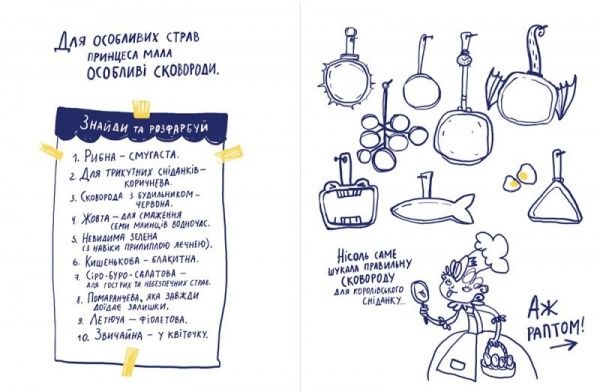 Для особливих страв
принцеса мала
особливі сковороди.
Знайди та розфарбуй
1. Рибна – смугаста.
2. Для трикутних сніданків –
коричнева.
3. Сковорода з будильником –
червона.
4. Жовта – для смаження
семи млинців водночас.
5. Невидима зелена
(з навіки прилиплою яєчнею).
6. Кишенькова – блакитна.
7. Сіро-буро-салатова –
для гострих та небезпечних страв.
8. Помаранчева, яка завжди
доїдає залишки.
9. Летюча – фіолетова.
10. Звичайна – у квіточку.
Нісоль саме
шукала правильну
сковороду
для королівського
сніданку...
Аж
раптом!